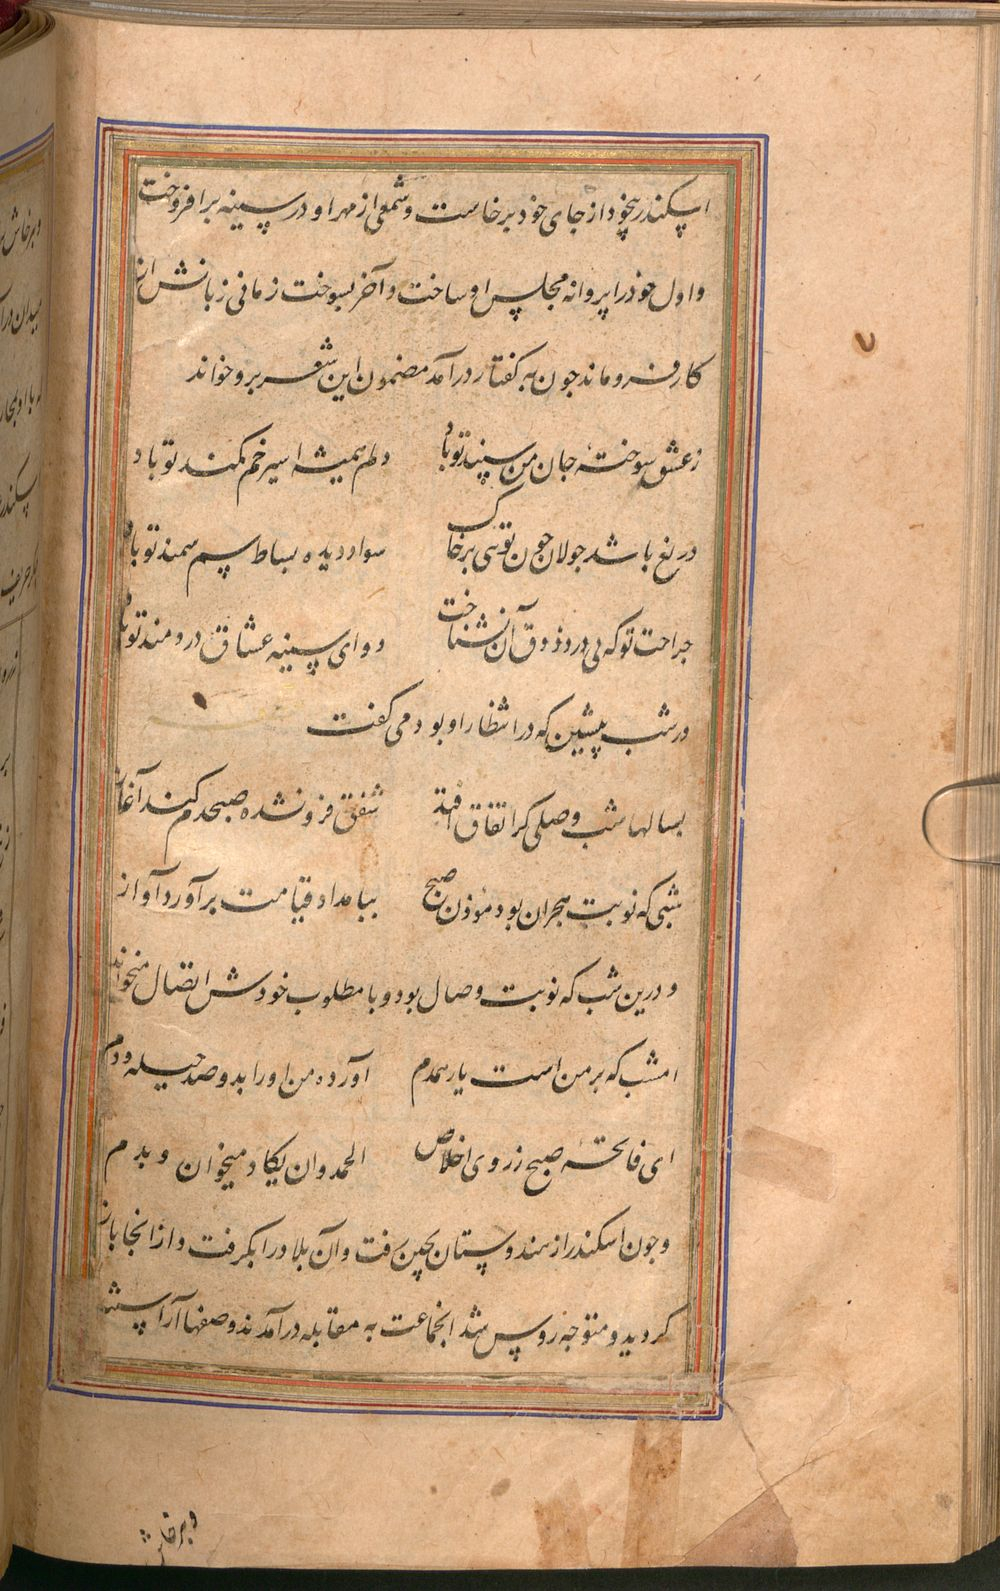 اسکندر بیخود از جای خود برخاست و شمعی از مهر او در سینه برافروخت
و اول خود را پروانه مجلس او ساخت و آخر بسوخت زمانی زبانش از
کار فرو ماند چون به کفتار درآمد مضمون این شعر برو خواند
ز عشق سوختهٔ جان من سپند تو باد دلم همیشه اسیر خم کمند تو باد
دریغ باشد جولان چون تویی بر خاک سواد دیده بساط سم سمند تو باد
جراحت تو که بی درد ذوق آن نشناخت دوای سینه عشاق دردمند تو باد
در شب پیشین که در انتظار او بود می کفت
بسالها شب وصلی کر اتفاق افتد شفق فرو نشده صبحدم کند آغاز
شبی که نوبت هجران بود موذن صبح ببامداد قیامت برآورد آواز
و درین شب که نوبت وصال بود و با مطلوب خودش اتصال میخواند
امشب که بر من است یار همدم آورده من او را بدو صد حیله و دم
ای فاتحهٔ صبح ز روی اخلاص الحمد و ان یکاد میخوان و بدم
و چون اسکندر از هندوستان بچین رفت و آن بلاد را بکرفت و از انجا باز
کردید و متوجه روس شد انجماعت به مقابله درآمدند و صفها آراسته
و پرخاش